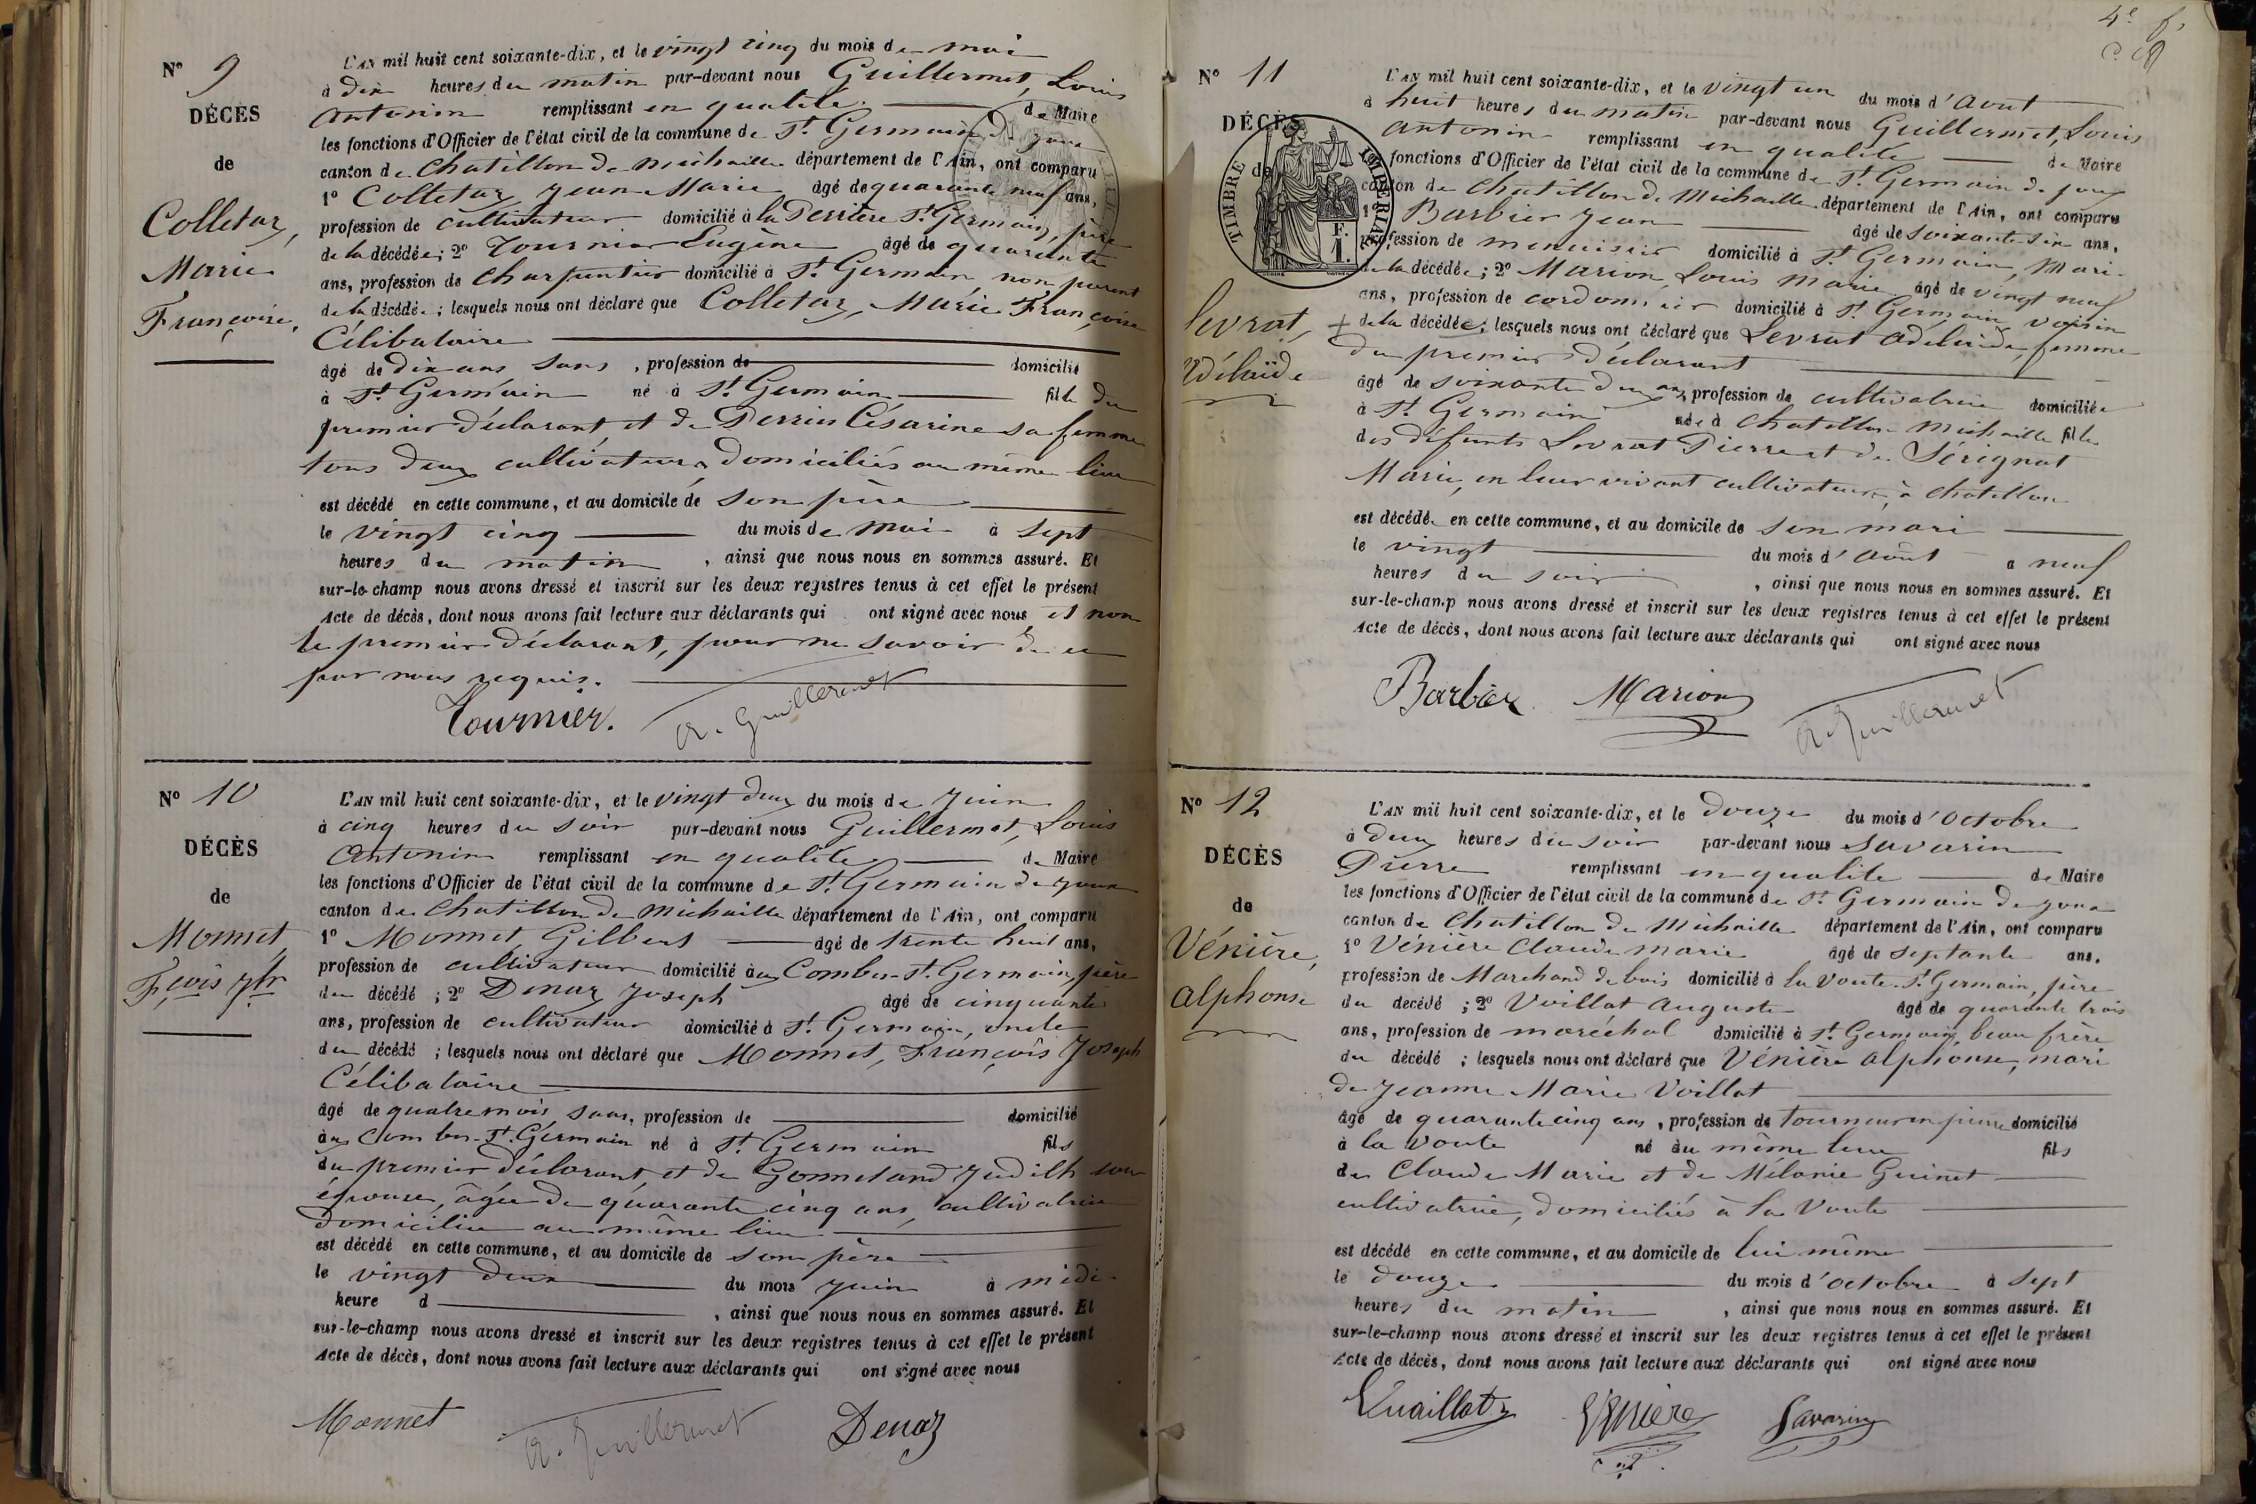 Nº 9
DÉCÈS
de
Colletaz,
Marie
Françoise,
L'AN mil huit cent soixante-dix, et le vingt cinq du mois de mai
à dix heures du matin par-devant nous Guillermet, Louis
Antonin remplissant en qualité de Maire
les fonctions d'Officier de l'état civil de la commune de St. Germain de joux
canton de Chatillon de Michaille département de l'Ain, ont comparu
1º Colletaz, Jean Marie âgé de quarante neuf ans,
profession de cultivateur domicilié à la Derrière St. Germain, père
de la décédée; 2º Tournier Eugène âgé de quarante
ans, profession de charpentier domicilié à St. Germain, non parent
de la décédée; lesquels nous ont déclaré que Colletaz, Marie Françoise
Célibataire
âgé de dix ans sans, profession de domicilié
à St. Germain né à St. Germain fille du
premier déclarant, et de Perrin Césarine sa femme
tous deux cultivateurs, domiciliés au même lieu
est décédé en cette commune, et au domicile de son père
le vingt cinq du mois de mai à sept
heures du matin, ainsi que nous nous en sommes assuré. Et
sur-le-champ nous avons dressé et inscrit sur les deux registres tenus à cet effet le présent
Acte de décès, dont nous avons fait lecture aux déclarants qui ont signé avec nous et non
le premier déclarant, pour ne savoir de ce
par nous requis.
Tournier. A. Guillermet
Nº 10
DÉCÈS
de
Monnet,
Fçois Jph
L'AN mil huit cent soixante-dix, et le vingt deux du mois de Juin
à cinq heures du soir par-devant nous Guillermet, Louis
Antonin remplissant en qualité de Maire
les fonctions d'Officier de l'état civil de la commune de St. Germain de joux
canton de Chatillon de Michaille département de l'Ain, ont comparu
1º Monnet Gilbert âgé de trente huit ans,
profession de cultivateur domicilié aux Combes-St. Germain, père
du décédé; 2º Denaz Joseph âgé de cinquante
ans, profession de cultivateur domicilié à St. Germain, oncle
du décédé; lesquels nous ont déclaré que Monnet, François Joseph
Célibataire
âgé de quatre mois sans, profession de domicilié
aux Combes-St. Germain né à St. Germain fils
du premier déclarant, et de Gonnetand Judith son
épouse, âgée de quarante cinq ans, cultivatrice
domiciliée au même lieu
est décédé en cette commune, et au domicile de son père
le vingt deux du mois Juin à midi
heure d , ainsi que nous nous en sommes assuré. Et
sur-le-champ nous avons dressé et inscrit sur les deux registres tenus à cet effet le présent
Acte de décès, dont nous avons fait lecture aux déclarants qui ont signé avec nous
Monnet A. Guillermet Denaz
4e f.
Nº 11
DÉCÈS
de
TIMBRE IMPÉRIAL
F.
1.
Levrat,
Adélaïde
L'AN mil huit cent soixante-dix, et le vingt un du mois d'Aout
à huit heures du matin par-devant nous Guillermet, Louis
Antonin remplissant en qualité de Maire
fonctions d'Officier de l'état civil de la commune de St. Germain de joux
canton de Chatillon de Michaille département de l'Ain, ont comparu
1º Barbier Jean âgé de soixante six ans,
profession de menuisier domicilié à St. Germain, Mari
de la décédée; 2º Marion, Louis Marie âgé de vingt neuf
ans, profession de cordonnier domicilié à St. Germain voisin
de la décédée; lesquels nous ont déclaré que Levrat Adelaide, femme
du premier déclarant
âgé de soixante deux ans, profession de cultivatrice domiciliée
à St. Germain née à Chatillon Michaille fille
des défunts Levrat Pierre et de Sérignat
Marie, en leur vivant cultivateurs, à Chatillon
est décédée en cette commune, et au domicile de son mari
le vingt du mois d'Août à neuf
heures du soir, ainsi que nous nous en sommes assuré. Et
sur-le-champ nous avons dressé et inscrit sur les deux registres tenus à cet effet le présent
Acte de décès, dont nous avons fait lecture aux déclarants qui ont signé avec nous
Barbier Marion A. Guillermet
Nº 12
DÉCÈS
de
Vénière,
Alphonse
L'AN mil huit cent soixante-dix, et le douze du mois d'Octobre
à deux heures du soir par-devant nous Savarin
Pierre remplissant en qualité de Maire
les fonctions d'Officier de l'état civil de la commune de St. Germain de joux
canton de Chatillon de Michaille département de l'Ain, ont comparu
1º Vénière Claude Marie âgé de septante ans,
profession de Marchand de bois domicilié à la Voute-St. Germain, père
du décédé; 2º Voillat Auguste âgé de quarante trois
ans, profession de maréchal domicilié à St. Germain, beau frère
du décédé; lesquels nous ont déclaré que Vénière Alphonse, mari
de Jeanne Marie Voillat
âgé de quarante cinq ans, profession de tourneur en pierre domicilié
à la Voute né au même lieu fils
de Claude Marie et de Mélanie Guinet
cultivatrice, domiciliés à la Voute
est décédé en cette commune, et au domicile de lui même
le douze du mois d'Octobre à sept
heures du matin, ainsi que nous nous en sommes assuré. Et
sur-le-champ nous avons dressé et inscrit sur les deux registres tenus à cet effet le présent
Acte de décès, dont nous avons fait lecture aux déclarants qui ont signé avec nous
Vuaillat Vénière Savarin